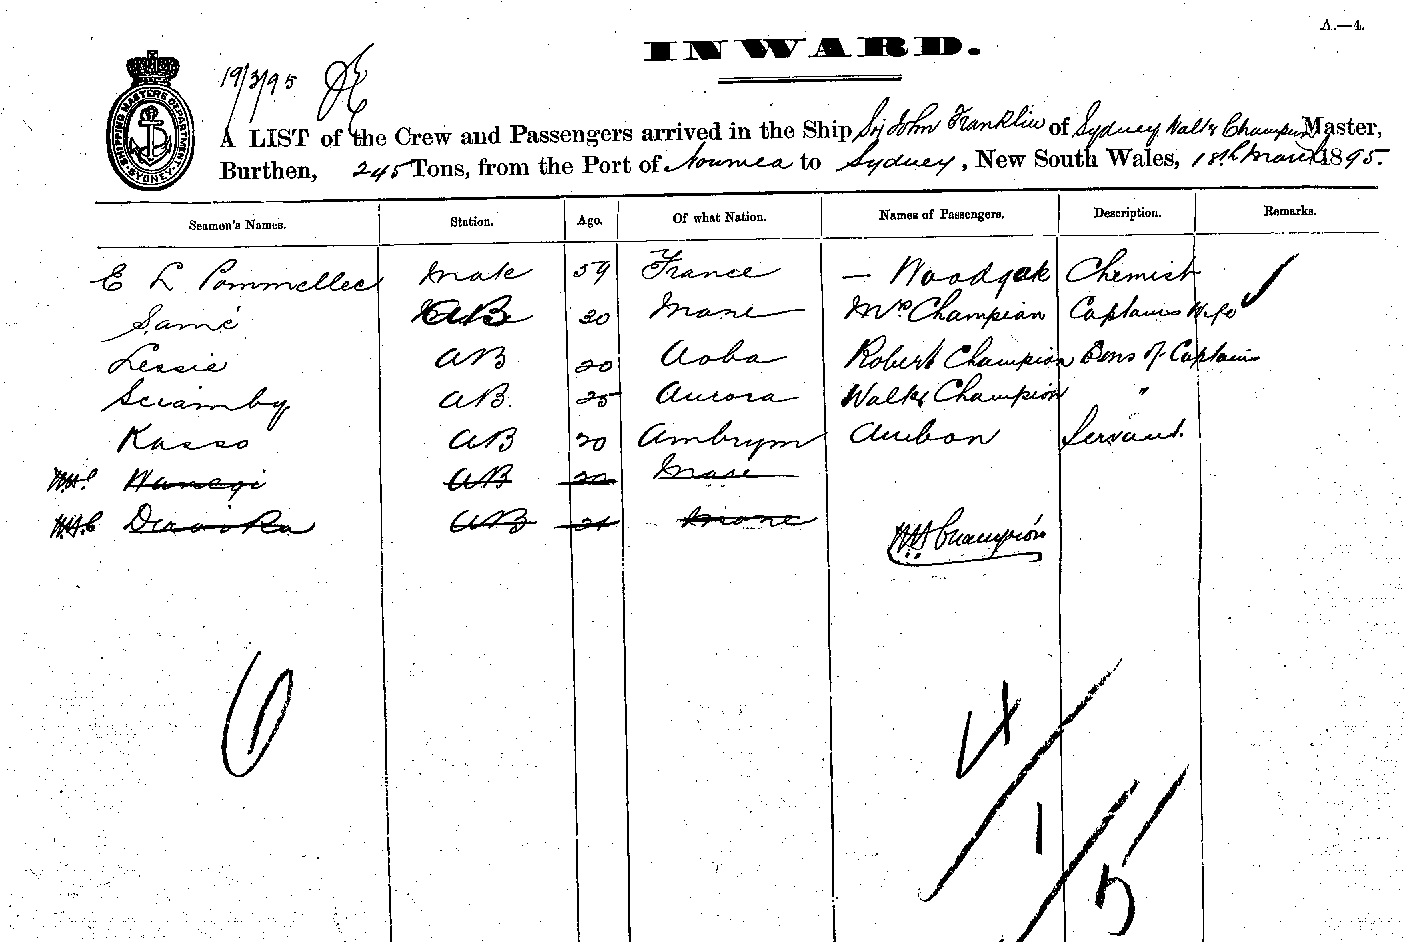 A.—4.
INWARD.
SHIPPING MASTERS DEPARTMENT SYDNEY
19/3/95
A LIST of the Crew and Passengers arrived in the Ship Sir John Franklin of Sydney Walter Champion Master,
Burthen, 245 Tons, from the Port of Noumea to Sydney, New South Wales, 18th March 1895.
Seamen's Names. Station. Age. Of what Nation. Names of Passengers. Description. Remarks.
E L Pommellec Mate 59 France — Woodgak Chemist
Samé AB 30 Mare Mrs Champion Captains Wife ✓
Lessie AB 20 Aoba Robert Champion Sons of Captain
Sciamby AB. 25 Aurora Walter Champion "
Kasso AB 20 Ambrym Aubon Servant.
AB Mare
AB 21 Mare
W.H. Champion
6
4
1
5